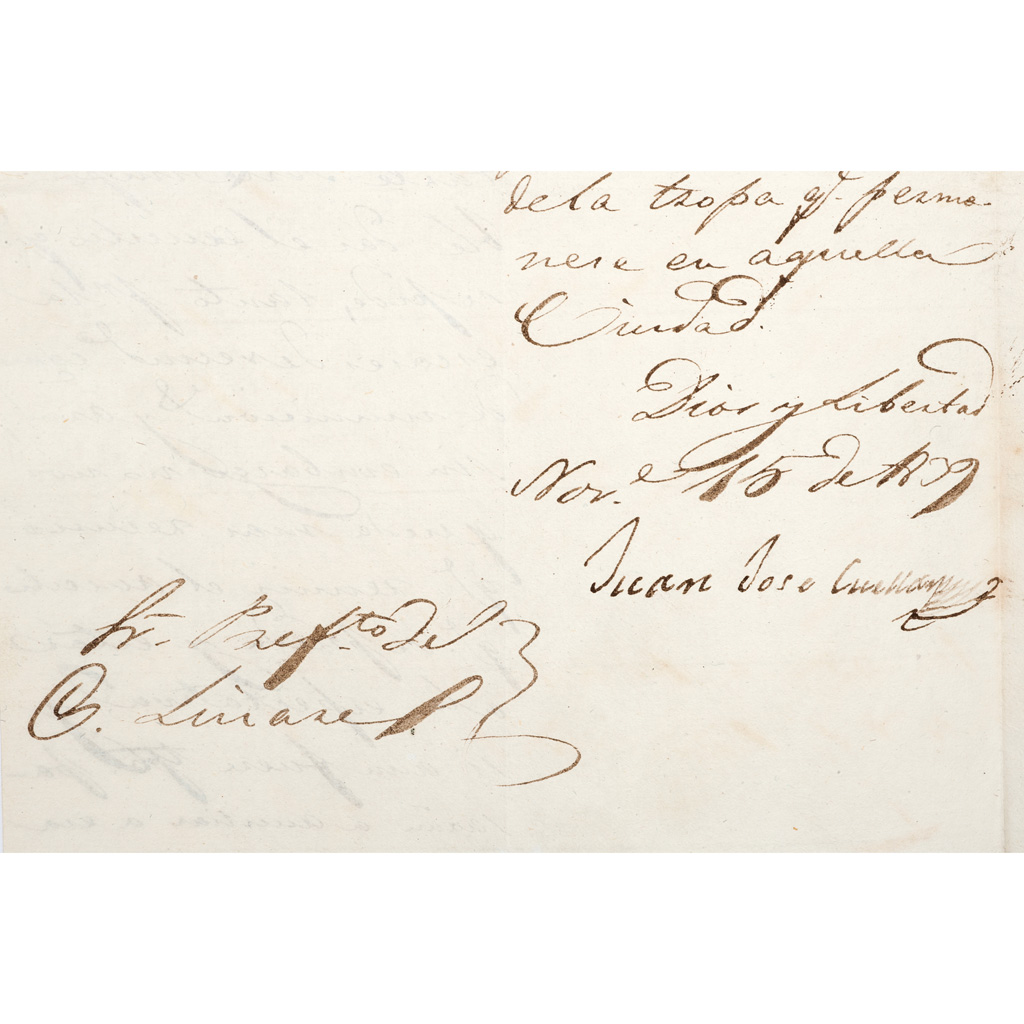 dela tropa qᵉ. perma-
nese en aquella
Ciudad.
Dios y Libertad
Nov.ᵉ 15 de 1839
Juan Jose Cuellar
Sr. Pref.ᵗᵒ del
C. Linares.